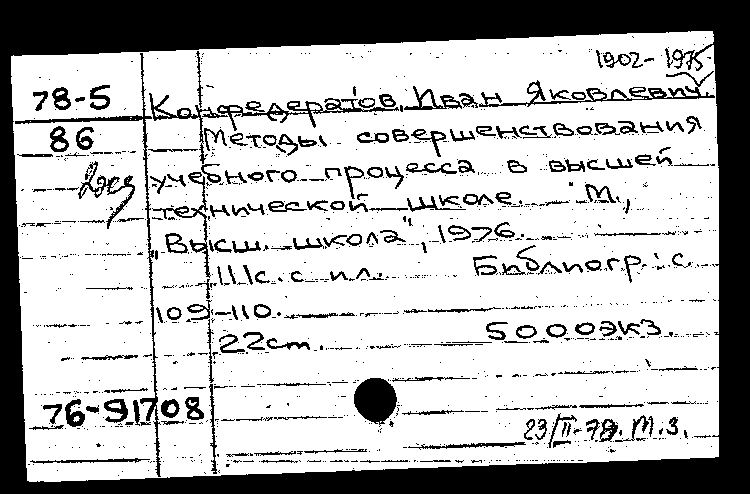 1902-1975
78-5 Конфедератов, Иван Яковлевич.
86 Методы совершенствования
2экз учебного процесса в высшей
технической школе. М.,
"Высш. школа", 1976.
111с. с ил. Библиогр.: с.
109-110.
22см. 5000экз.
76-91708
23/II-78г. М.З.